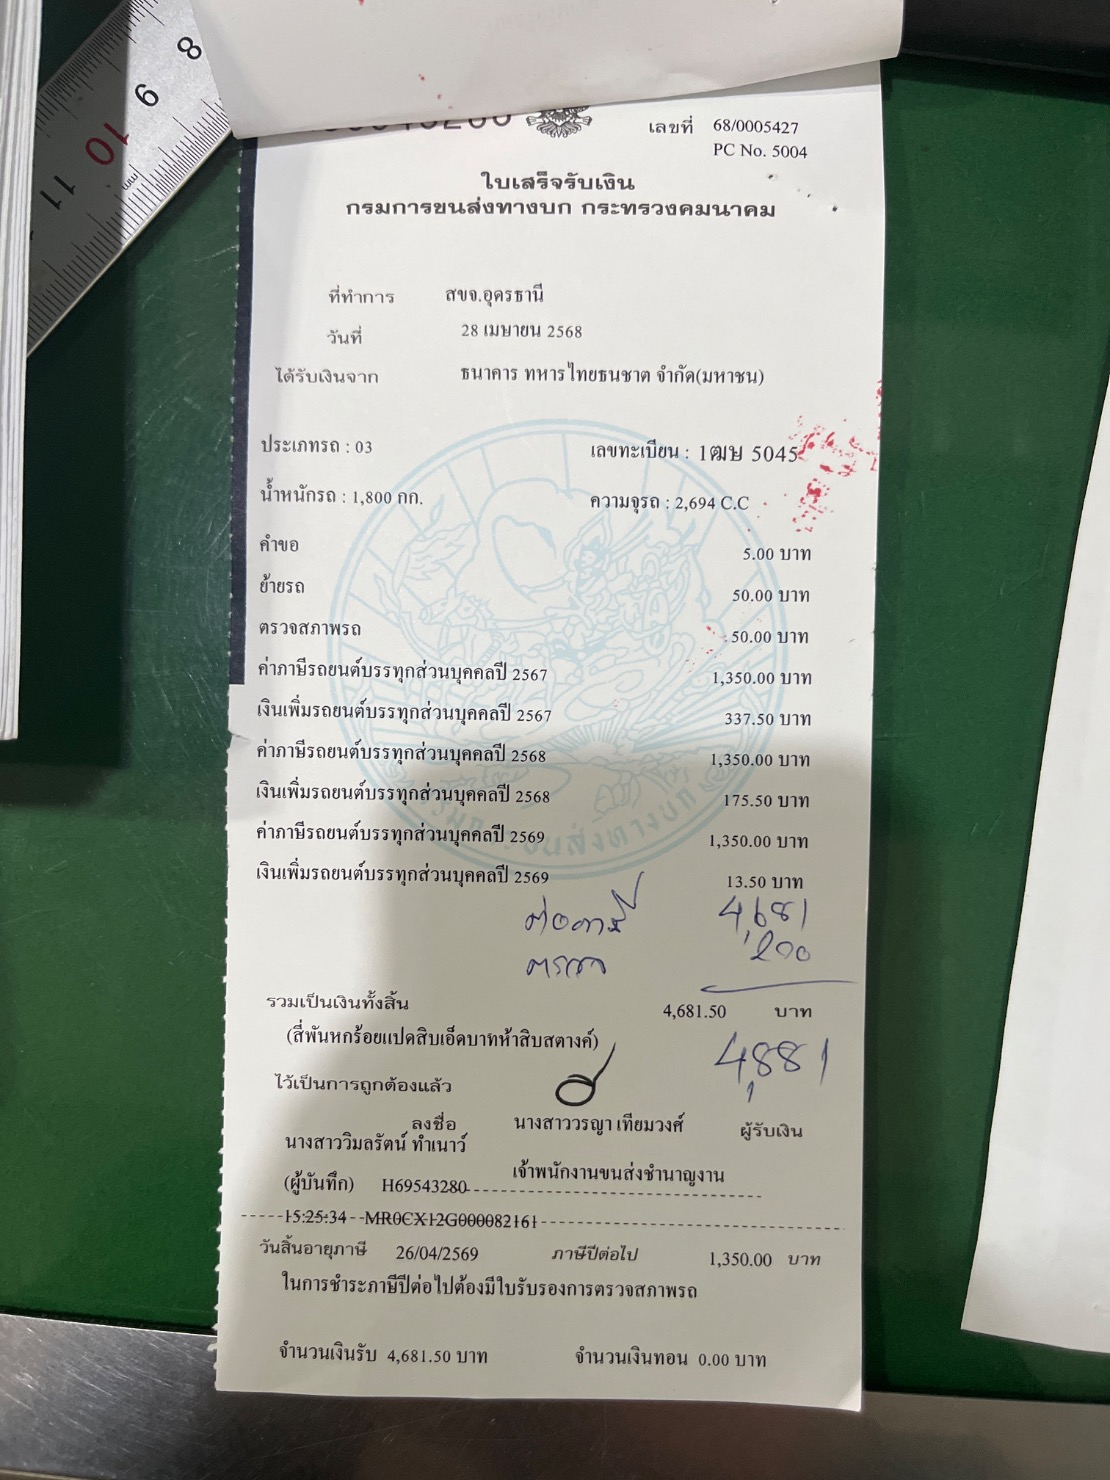 8
9
10
11
mm
เลขที่ 68/0005427
PC No. 5004
ใบเสร็จรับเงิน
กรมการขนส่งทางบก กระทรวงคมนาคม
ที่ทำการ สขจ.อุดรธานี
วันที่ 28 เมษายน 2568
ได้รับเงินจาก ธนาคาร ทหารไทยธนชาต จำกัด(มหาชน)
ประเภทรถ : 03 เลขทะเบียน : 1ฒษ 5045
น้ำหนักรถ : 1,800 กก. ความจุรถ : 2,694 C.C
คำขอ 5.00 บาท
ย้ายรถ 50.00 บาท
ตรวจสภาพรถ 50.00 บาท
ค่าภาษีรถยนต์บรรทุกส่วนบุคคลปี 2567 1,350.00 บาท
เงินเพิ่มรถยนต์บรรทุกส่วนบุคคลปี 2567 337.50 บาท
ค่าภาษีรถยนต์บรรทุกส่วนบุคคลปี 2568 1,350.00 บาท
เงินเพิ่มรถยนต์บรรทุกส่วนบุคคลปี 2568 175.50 บาท
ค่าภาษีรถยนต์บรรทุกส่วนบุคคลปี 2569 1,350.00 บาท
เงินเพิ่มรถยนต์บรรทุกส่วนบุคคลปี 2569 13.50 บาท
ต่อภาษี 4,681
ตรวจ 200
รวมเป็นเงินทั้งสิ้น 4,681.50 บาท
(สี่พันหกร้อยแปดสิบเอ็ดบาทห้าสิบสตางค์)
4,881
ไว้เป็นการถูกต้องแล้ว
ลงชื่อ นางสาววรญา เทียมวงศ์ ผู้รับเงิน
นางสาววิมลรัตน์ ทำเนาว์
(ผู้บันทึก) H69543280 เจ้าพนักงานขนส่งชำนาญงาน
15:25:34 MR0CX12G000082161
วันสิ้นอายุภาษี 26/04/2569 ภาษีปีต่อไป 1,350.00 บาท
ในการชำระภาษีปีต่อไปต้องมีใบรับรองการตรวจสภาพรถ
จำนวนเงินรับ 4,681.50 บาท จำนวนเงินทอน 0.00 บาท